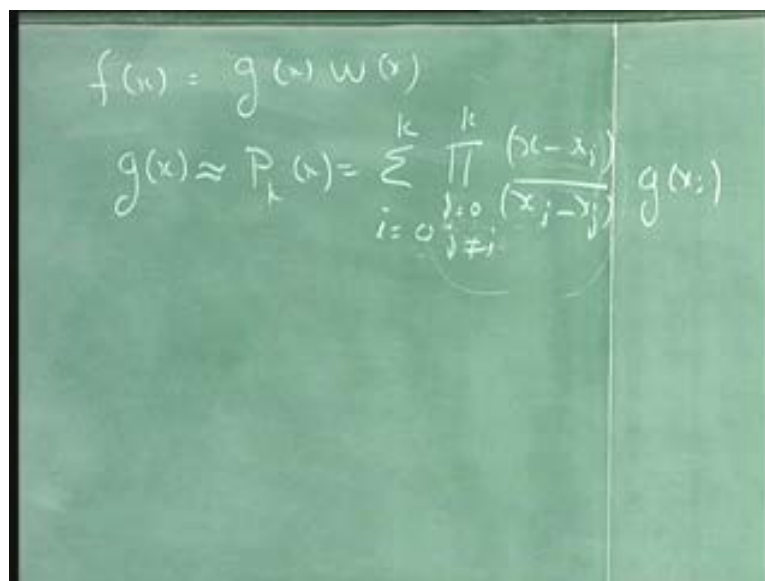 f(x) = g(x) w(x)
g(x) ≈ P_k(x) = Σ_{i=0}^{k} ∏_{j=0, j≠i}^{k} (x - x_j)/(x_i - x_j) g(x_i)